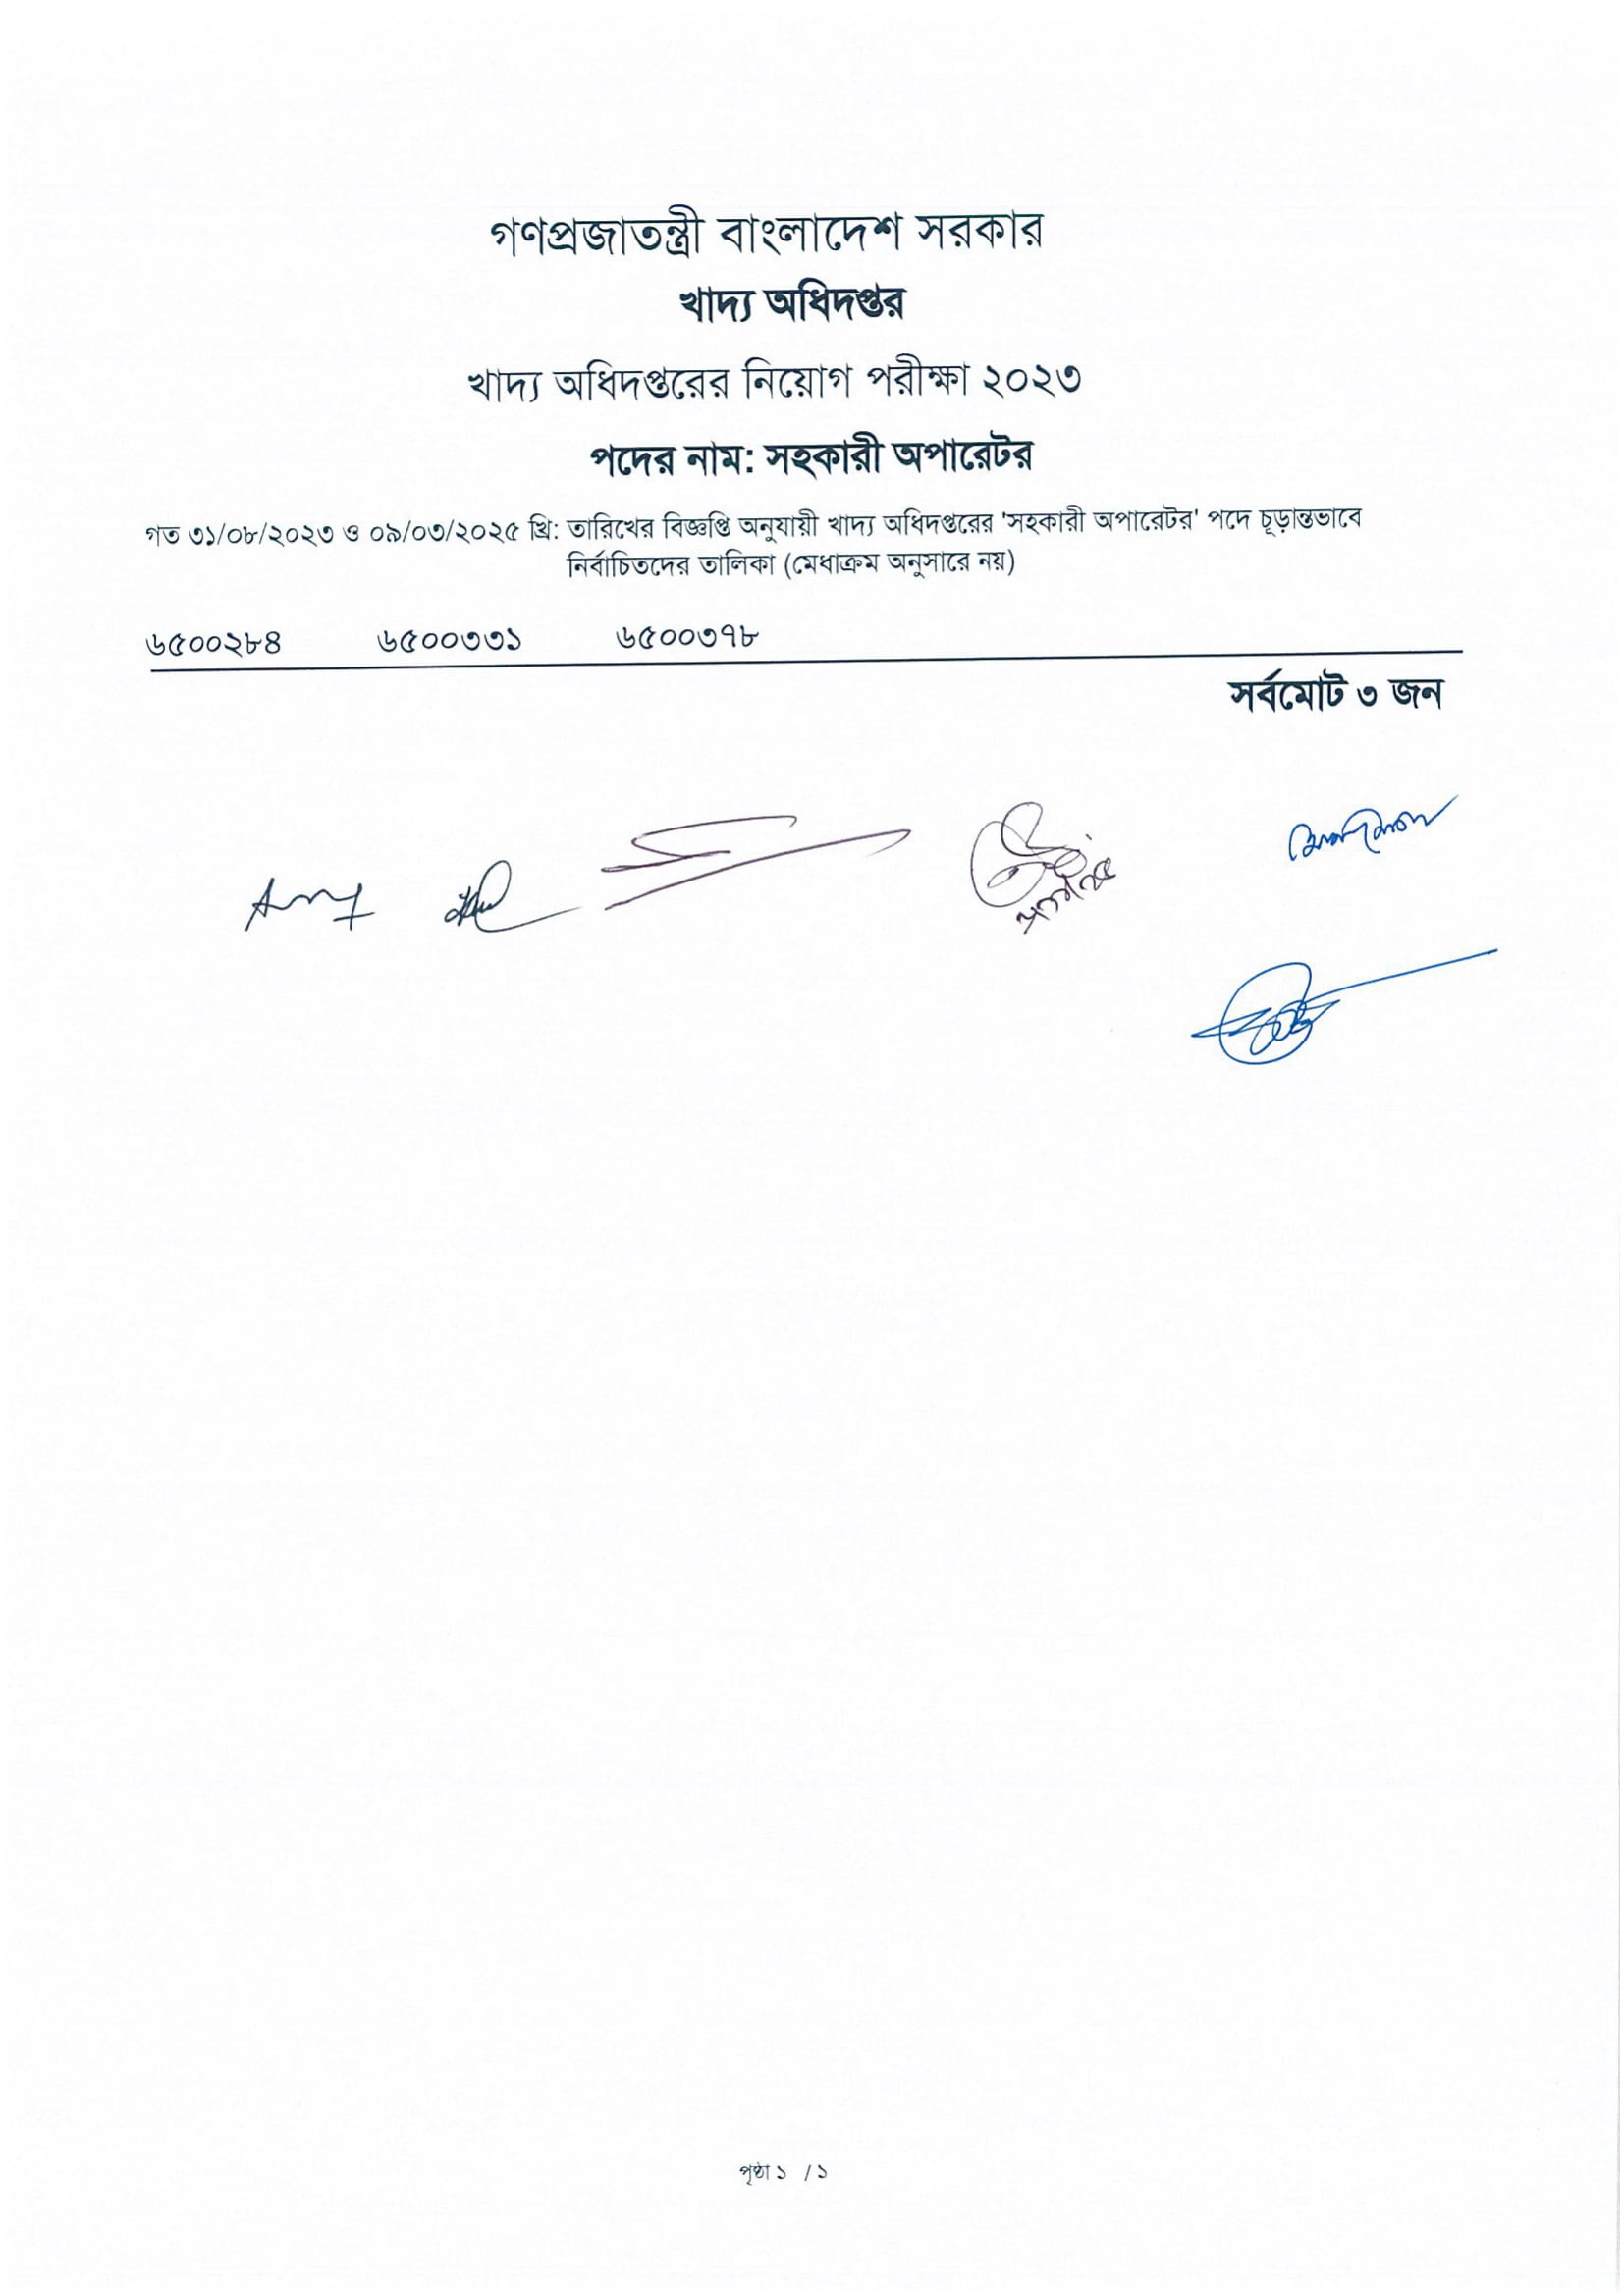 গণপ্রজাতন্ত্রী বাংলাদেশ সরকার
খাদ্য অধিদপ্তর
খাদ্য অধিদপ্তরের নিয়োগ পরীক্ষা ২০২৩
পদের নাম: সহকারী অপারেটর
গত ৩১/০৮/২০২৩ ও ০৯/০৩/২০২৫ খ্রি: তারিখের বিজ্ঞপ্তি অনুযায়ী খাদ্য অধিদপ্তরের 'সহকারী অপারেটর' পদে চূড়ান্তভাবে
নির্বাচিতদের তালিকা (মেধাক্রম অনুসারে নয়)
৬৫০০২৮৪ ৬৫০০৩৩১ ৬৫০০৩৭৮
সর্বমোট ৩ জন
পৃষ্ঠা ১ / ১